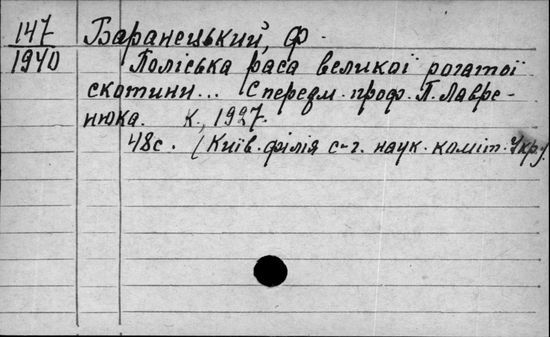 147
1940
Баранецький, Ф.
Поліська раса великої рогатої
скотини... С передм. проф. П. Лавре-
нюка. К., 1927.
48с. (Київ. філія с-г. наук. коміт. Укр.)